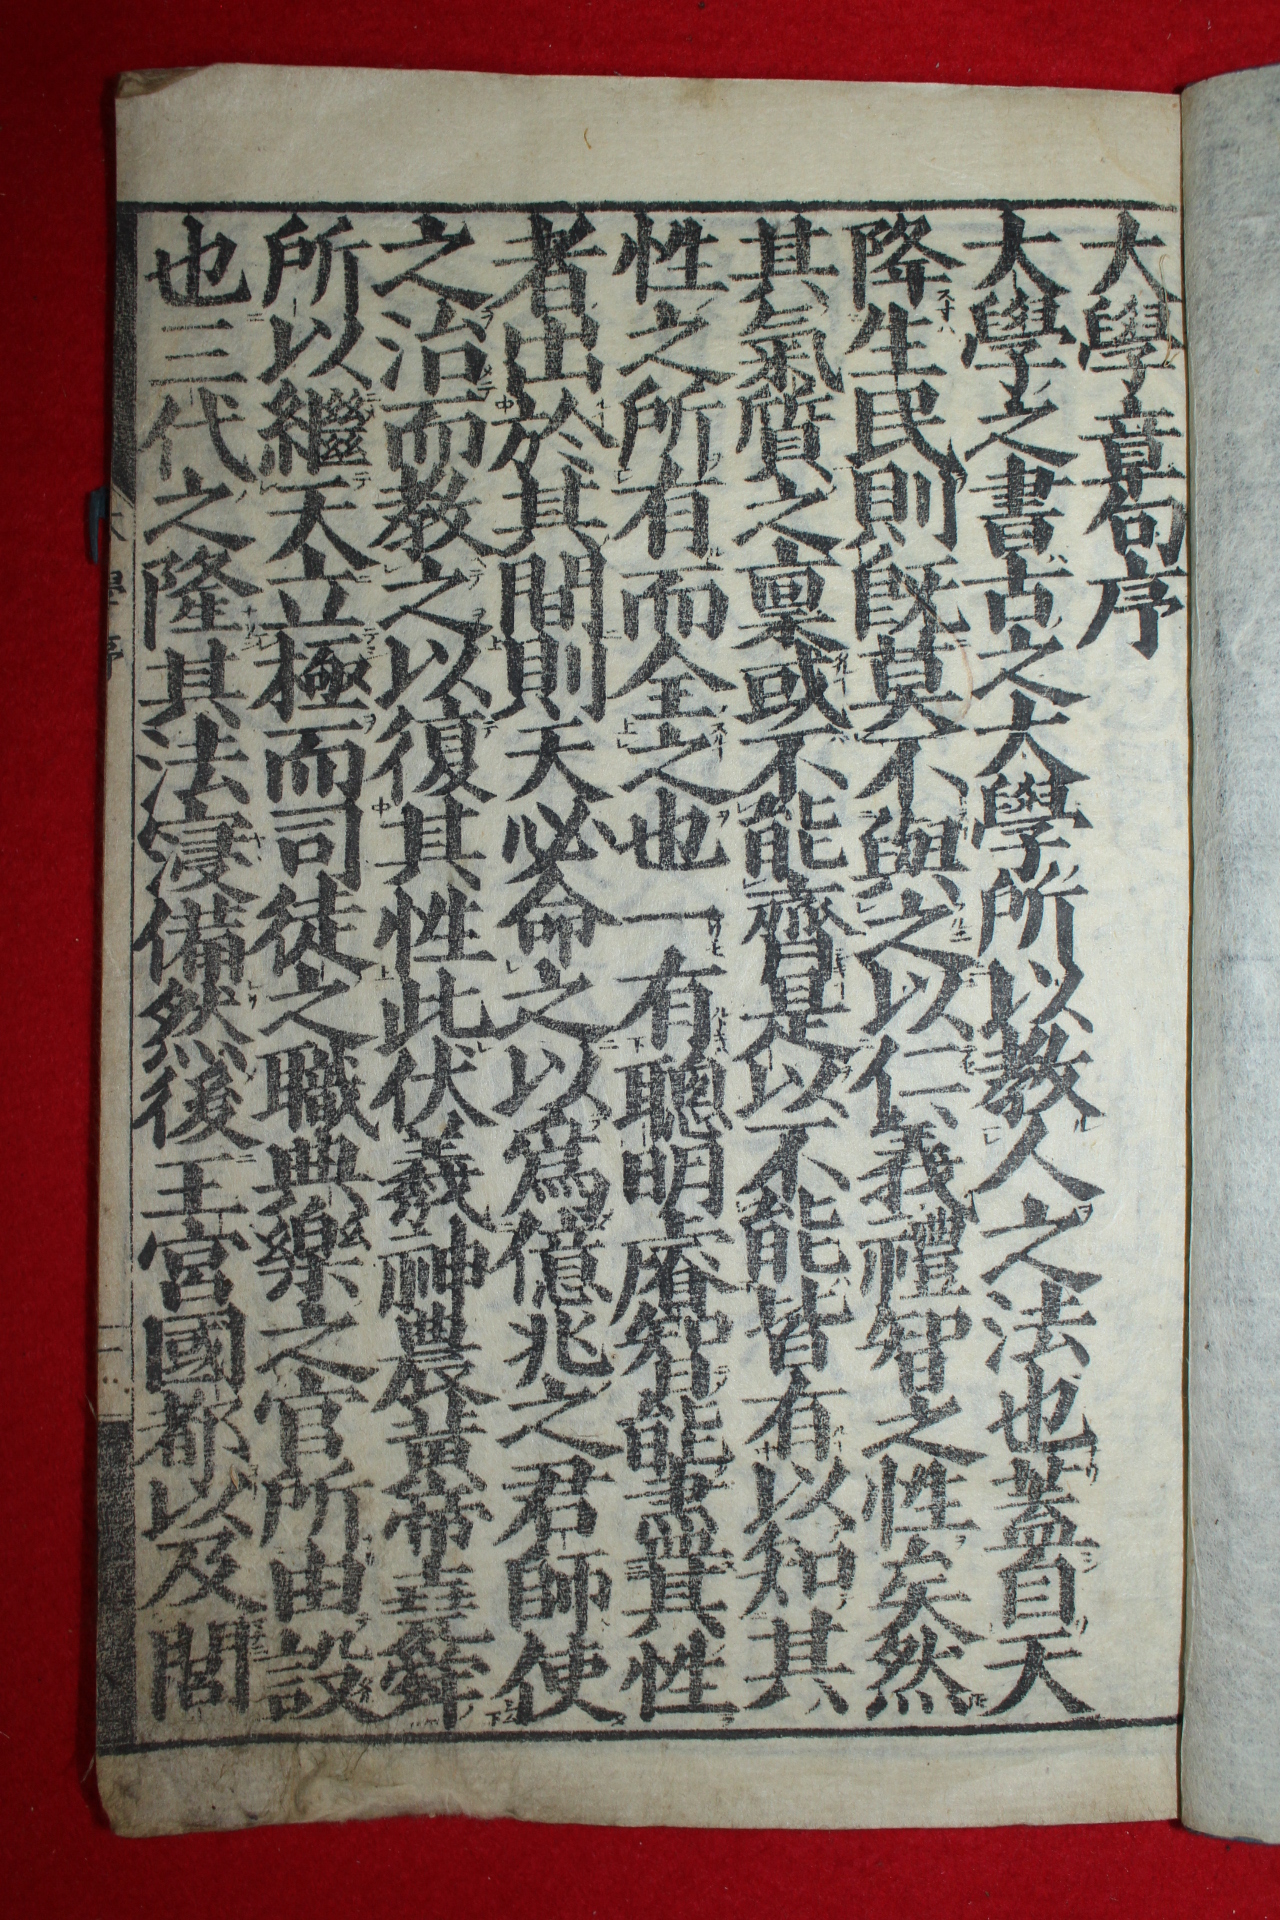 大學章句序
大學之書古之大學所以教人之法也蓋自天
降生民則旣莫不與之以仁義禮智之性矣然
其氣質之稟或不能齊是以不能皆有以知其
性之所有而全之也一有聰明睿智能盡其性
者出於其間則天必命之以爲億兆之君師使
之治而教之以復其性此伏羲神農黃帝堯舜
所以繼天立極而司徒之職典樂之官所由設
也三代之隆其法寖備然後王宮國都以及閭
大學序